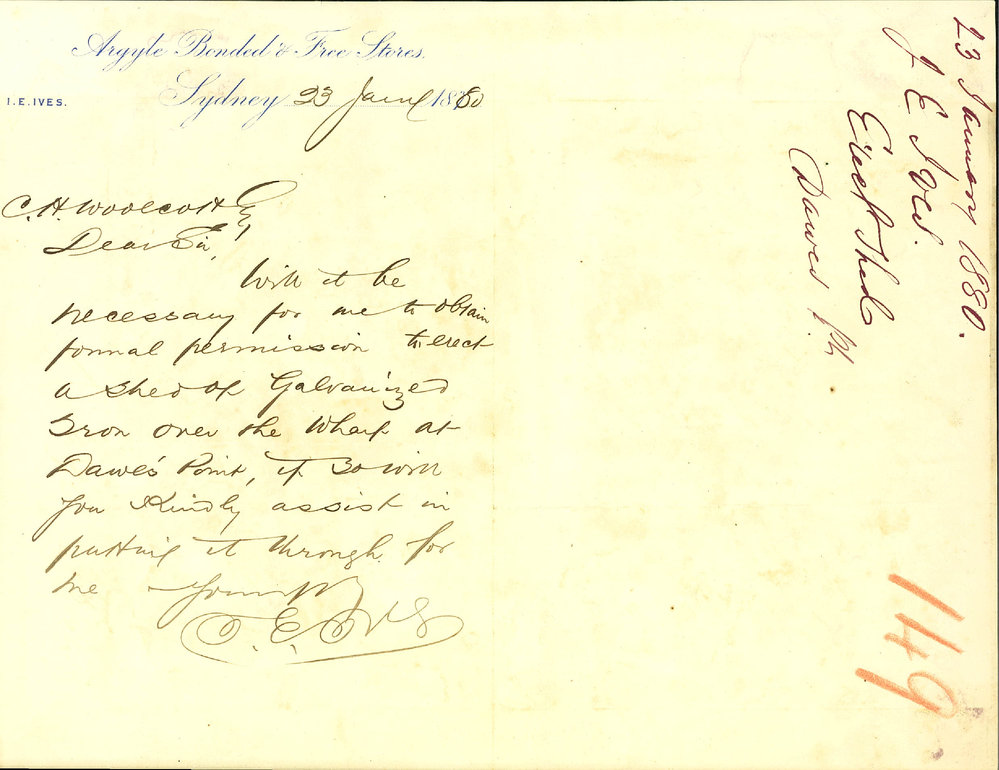 Argyle Bonded & Free Stores.
I. E. IVES.
Sydney 23 Jany 1880
C. H. Woolcott Esq
Dear Sir,
Will it be
necessary for me to obtain
formal permission to erect
a shed of Galvanized
Iron over the Wharf at
Dawe's Point, if so will
you Kindly assist in
putting it through for
me Yours
I. E. Ives
23 January 1880.
J E Ives.
Erect Shed
Dawes Pt
149